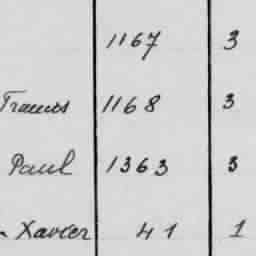 1167 3
1168 3
Paul 1363 3
Xavier 41 1